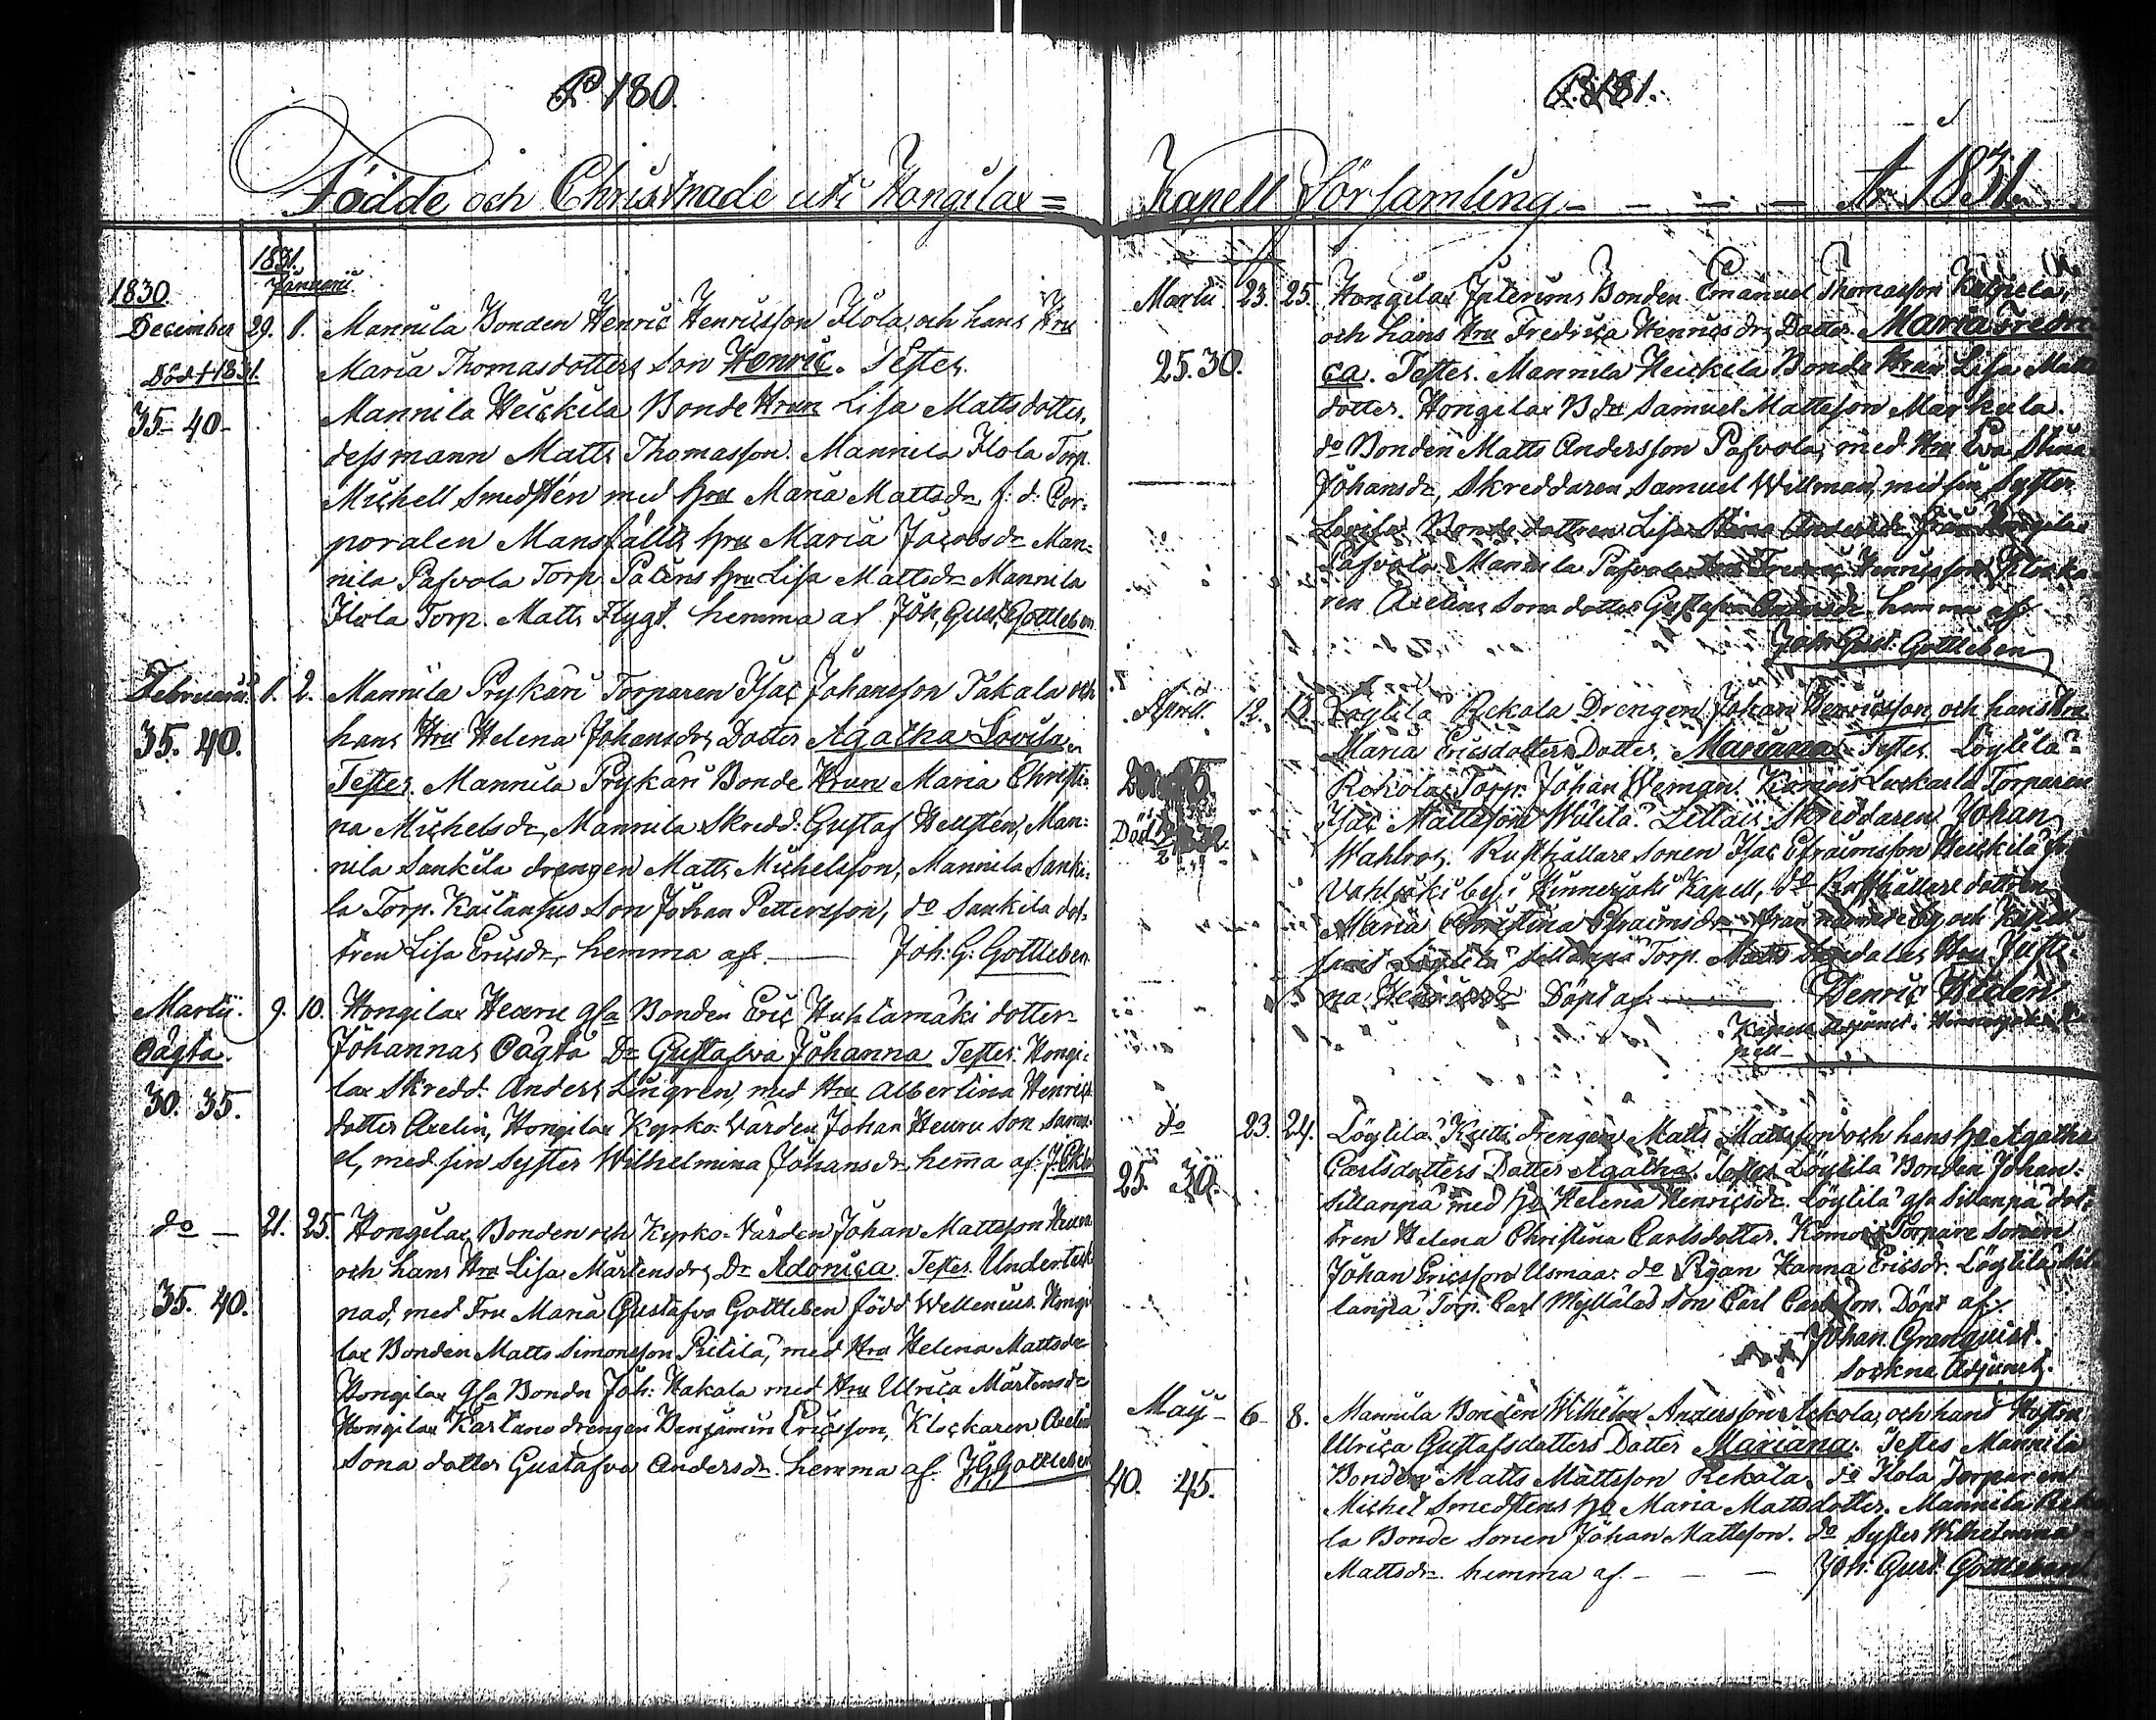 P 180.
Födde och Christnade uti Hongilax=
1831.
1830. Januarii
December 29. 1. Mannila Bonden Henric Henricsson Ilola, och hans Hru
Död † 1831. Maria Thomasdotters Son Henric. Testes.
35-40- Mannila Heickila Bonde Hrun Lisa Mattsdotter,
dessmann Matts Thomasson. Mannila Ilola Torp.
Michell Smedsten med Hru Maria Mattsdr, f: d: Cor=
poralen Mansfälts hru Maria Jacobsdr Man=
nila Pasvola Torp. Patens hru Lisa Mattsdr Mannila
Ilola Torp. Matts Flygt. hemma af Joh, Gust, Gottleben
Februarii 1. 2. Mannila Prykäri Torparen Isac Johansson Takala och
35. 40. hans Hru Helena Johansdrs Dotter Agatha Lovisa.
Testes. Mannila Prykäri Bonde Hrun Maria Christi=
na Michelsdr, Mannila Skredd: Gustaf Hellsten, Man=
nila Sankila drengen Matts Michelsson, Mannila Sanki=
la Torp. Kaitansus Son Johan Pettersson, do Sankila dot=
tren Lisa Ericsdr, hemma af. Joh: G: Gottleben
Martii. 9. 10. Hongilax Heuru gla Bonden Eric Huhtamäki dotter
Oägta. Johannas Oägta Dr Gustafva Johanna Testes: Hongi=
30. 35. lax Skredd. Anders Lingren, med Hru Albertina Henrics
dotter Axelin, Hongilax Kyrko-Värden Johan Heuru Son Samu=
el, med sin Syster Wilhelmina Johansdr, hemma af:
do — 21. 25. Hongilax Bonden och Kyrko-Värden Johan Mattsson Heuru
och hans Hru Lisa Mårtensdrs Dr Adonica Testes. Underteck
35. 40. nad, med Fru Maria Gustafva Gottleben född Wellenius. Hongi
lax Bonden Matts Simonsson Pitilä, med Hru Helena Mattsdr
Hongilax Gla Bondn Joh: Hakala med Hru Ulrica Mårtensdr
Hongilax Kartano drengen Benjamin Ericsson, Klockaren Axelins
Sona dotter Gustafva Andersdr. hemma af. J G Gottleben
P. 181.
Kapell Församling — — — — År 1831.
Martii 23. 25. Hongilax Interims Bonden Emanuel Thomasson
och hans Hru Fredrica Henrics drs Dotter. Maria Fredri
25. 30. ca. Testes. Mannila Heickila Bonde Hrun Lisa Matts
dotter. Hongilax Bdn Samuel Mattsson Markula.
do Bonden Matts Andersson Pasvola, med Hru Eva Stina
Johansdr, Skreddaren Samuel Willman, med sin Syster
Lovisa Bonde dottren Lisa Stina från Hongilax
Pasvola Mannila Pasvola Henricsson Klocka
ren Axelins Sona dotter Gustafva hemma af
Joh: Gust: Gottleben
April. 12. 13. Löytilä Rekola Drengen Johan Henricsson och hans Hru
Maria Ericsdotters Dotter Mariana Testes Löytilä
Rekola Torp: Johan Weman. Karinis Luckarla Torparen
Död Isac Mattsson Wälilä. Lellais Skreddaren Johan
Wahlroos. Rusthållare Sonen Isac Efraimsson Heickilä
Vahljäki by i Hinnerjoki Kapell, do Rusthållare dottren
Maria Christina Efraimsdr från by och Kapell
Löytilä Sillanpä Torp. Hru Justi=
na Döpt af Henric Widen
Kapells Adjunct i Hinnerjoki Ka
pell
do 23. 24. Löytilä Kritti drengen Matts Mattsson och hans ho Agatha
Carlsdotters Dotter Agatha Testes Löytilä Bonden Johan
25. 30. Sillanpä med ho Helena Henricsdr. Löytilä gla Sillanpä dot=
tren Helena Christina Carlsdotter, Torpare Sonen
Johan Ericsson Usmaa: do Pigan Hanna Ericsdr: Löytilä Sil
lanpä Torp. Carl Myllälas Son Carl Carlsson. Döpt af
Johan Granquist.
Sockne Adjunct.
Maji — 6. 8. Mannila Bonden Wilhelm Andersson och hans Hustru
Ulrica Gustafsdotters Dotter Mariana. Testes Mannila
40. 45. Bonden Matts Mattsson Rekola, do Ilola Torparen
Michel Smedstens ho Maria Mattsdotter. Mannila Reko
la Bonde Sonen Johan Mattsson. do Syster Wilhelmina
Mattsdr. hemma af — — — Joh: Gust: Gottleben